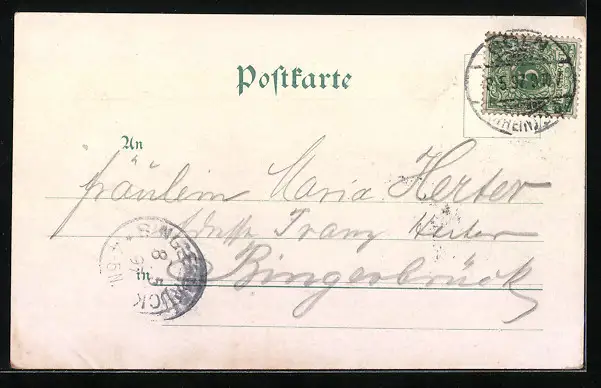 Postkarte
An
Fräulein Maria Herter
Adresse Franz Herter
in Bingerbrück
BINGERBRÜCK
8 5
97
5
(RHEIN)